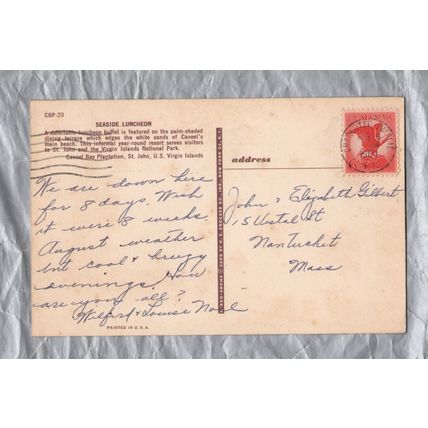 CBP-20
SEASIDE LUNCHEON
A delectable luncheon buffet is featured on the palm-shaded
dining terrace which edges the white sands of Caneel's
main beach. This informal year-round resort serves visitors
to St. John and the Virgin Islands National Park.
Caneel Bay Plantation, St. John, U.S. Virgin Islands
We are down here
for 8 days. Wish
it were 8 weeks.
August weather
but cool & breezy
evenings. How
are you all?
Wilfred & Louise Noël
PRINTED IN U.S.A.
address
John & Elizabeth Gilbert
15 Vestal St
Nantucket
Mass